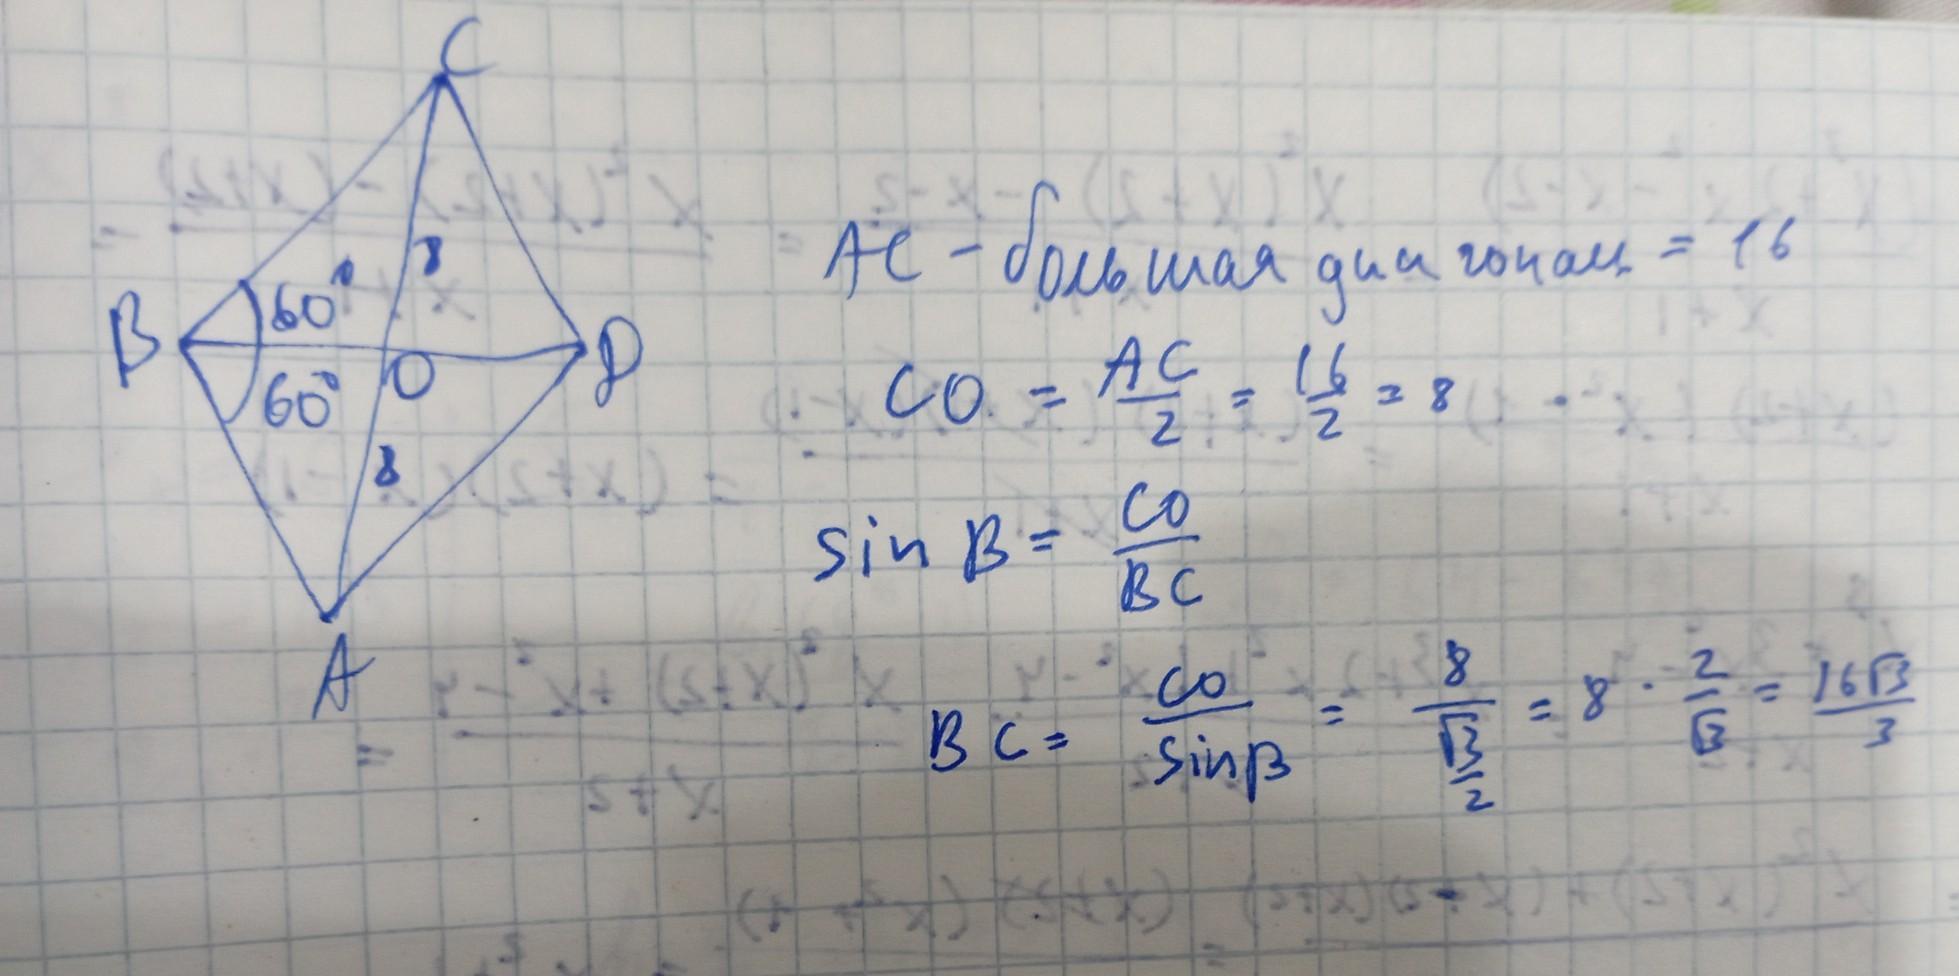 C
8
60°
B
O
D
60°
8
A
AC - большая диагональ = 16
CO = AC/2 = 16/2 = 8
sin B = CO/BC
BC = CO/sin B = 8/(√3/2) = 8 · 2/√3 = 16√3/3